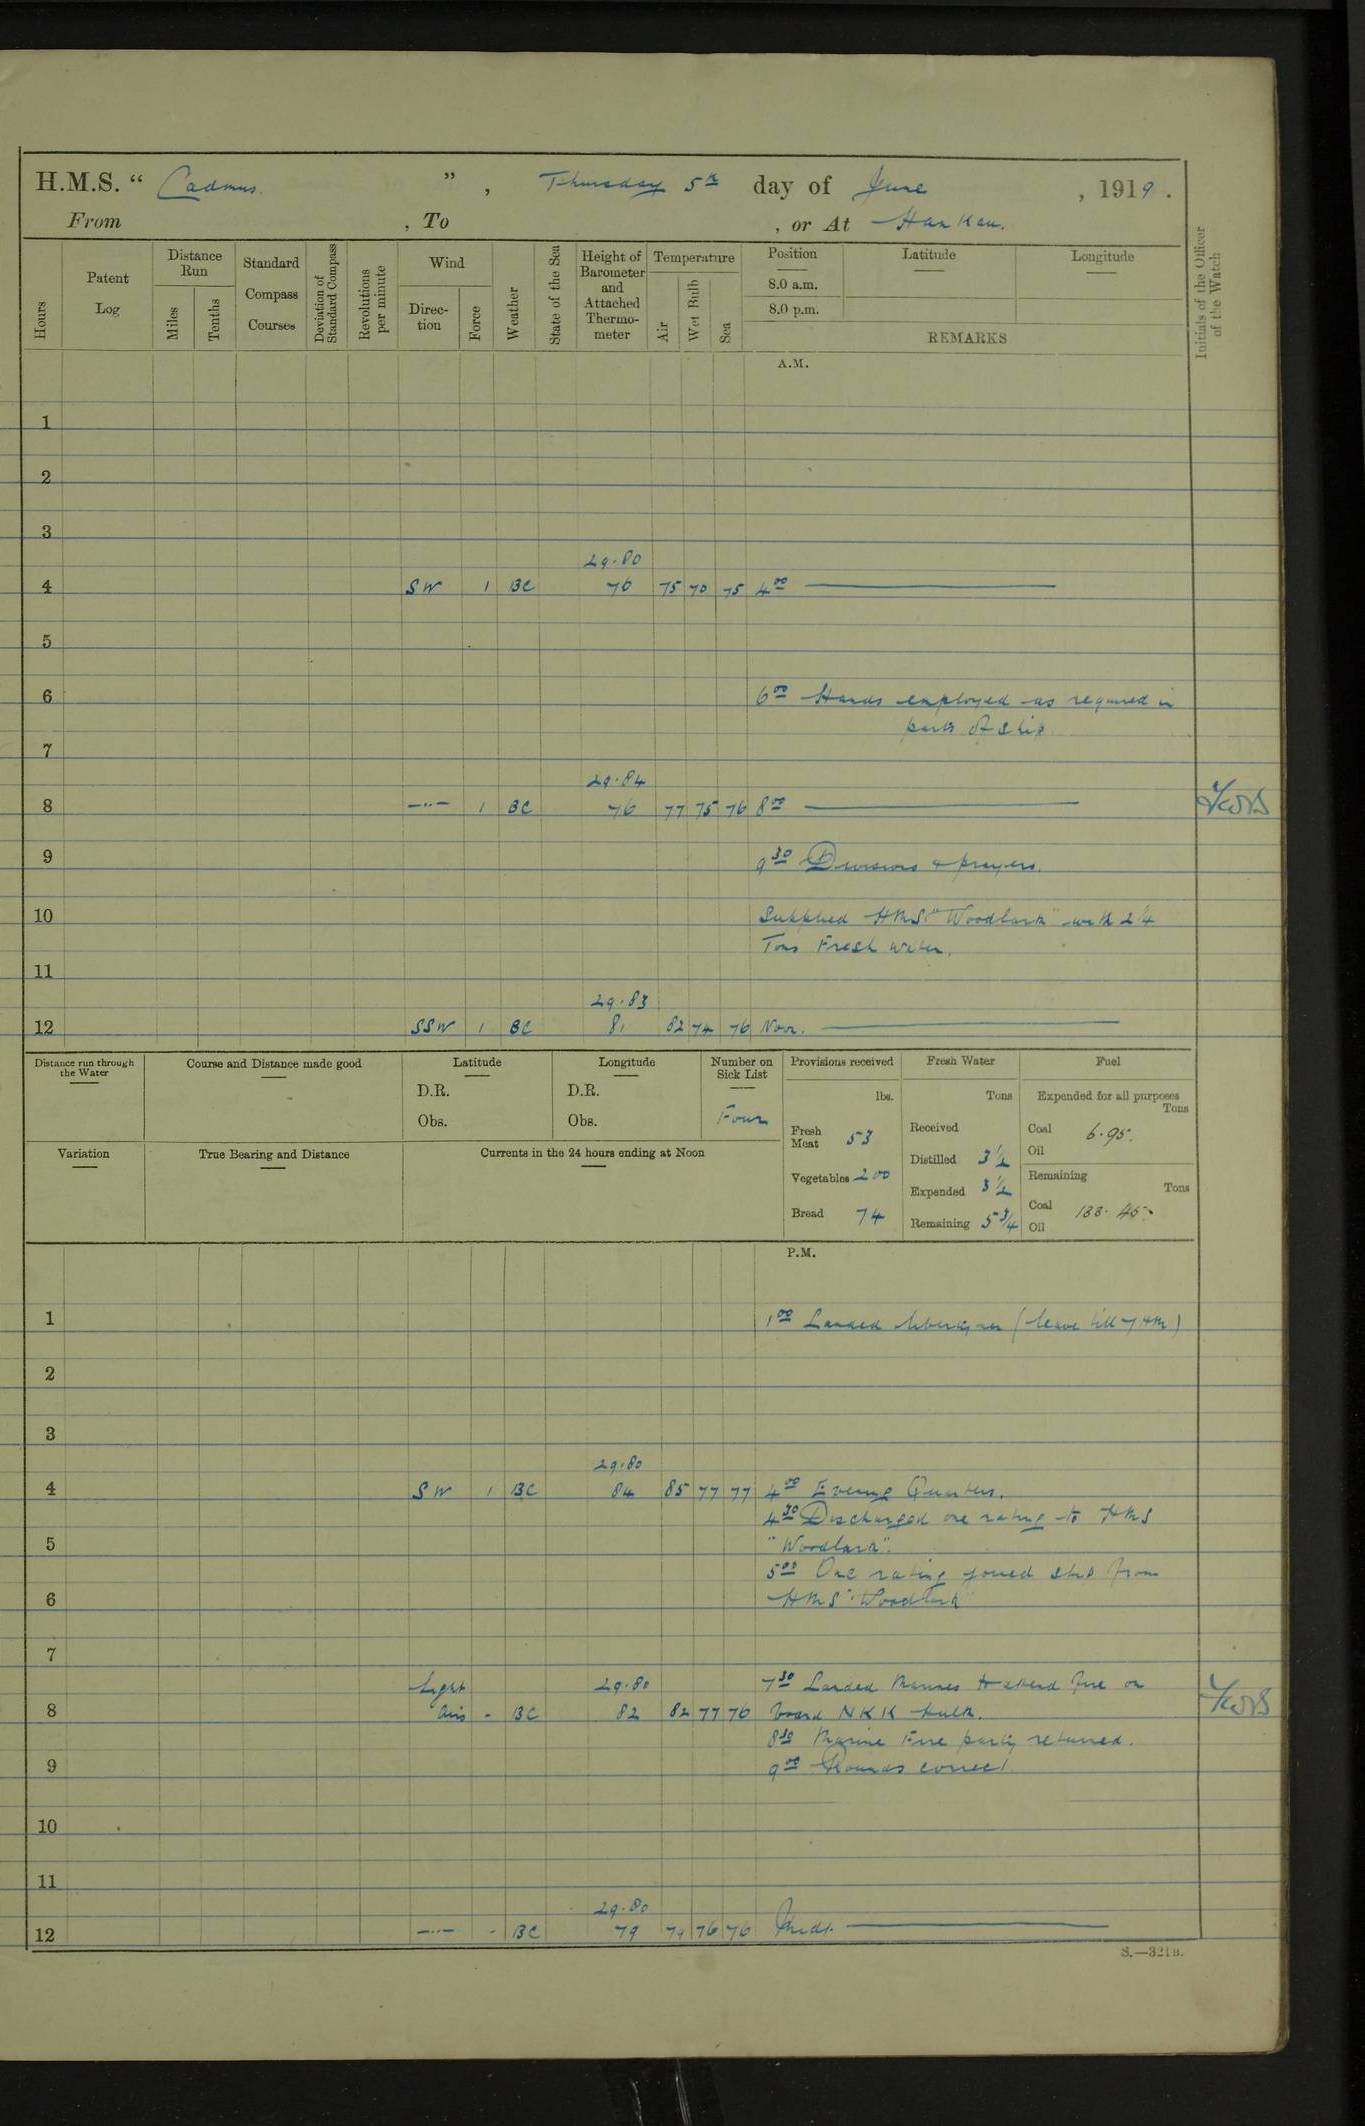 H.M.S. “ Cadmus ” , Thursday 5th day of June , 1919 .
From , To , or At Hankau.
Hours
Patent Log
Distance Run
Miles
Tenths
Standard Compass Courses
Deviation of Standard Compass
Revolutions per minute
Wind
Direc-tion
Force
Weather
State of the Sea
Height of Barometer and Attached Thermo-meter
Temperature
Air
Wet Bulb
Sea
Position
8.0 a.m.
8.0 p.m.
Latitude
Longitude
REMARKS
Initials of the Officer of the Watch
A.M.
1
2
3
29.80
4 SW 1 BC 76 75 70 75 4 00
5
6 6 00 Hands employed as required in
parts of ship.
7
29.84
8 —"— 1 BC 76 77 75 76 8 00
9 9 30 Divisions & prayers.
10 Supplied HMS "Woodlark" with 2 1/4
Tons Fresh Water.
11
29.83
12 SSW 1 BC 81 82 74 76 Noon.
Distance run through the Water
Course and Distance made good
Latitude
D.R.
Obs.
Longitude
D.R.
Obs.
Number on Sick List
Four
Provisions received
lbs.
Fresh Meat 53
Vegetables 200
Bread 74
Fresh Water
Tons
Received
Distilled 3 1/2
Expended 3 1/2
Remaining 5 3/4
Fuel
Expended for all purposes
Tons
Coal 6.95.
Oil
Remaining
Tons
Coal 133.45.
Oil
Variation
True Bearing and Distance
Currents in the 24 hours ending at Noon
P.M.
1 1 00 Landed libertymen (leave till 7 AM)
2
3
29.80
4 SW 1 BC 84 85 77 77 4 00 Evening Quarters.
4 30 Discharged one rating to HMS
5 "Woodlark".
5 00 One rating joined ship from
6 HMS "Woodlark"
7
Light 29.80 7 30 Landed Marines to attend fire on
8 airs - BC 82 82 77 76 board NKK hulk.
8 30 Marine Fire party returned.
9 9 00 Rounds correct.
10
11
29.80
12 —"— - BC 79 79 76 76 Midt.
S.—321B.